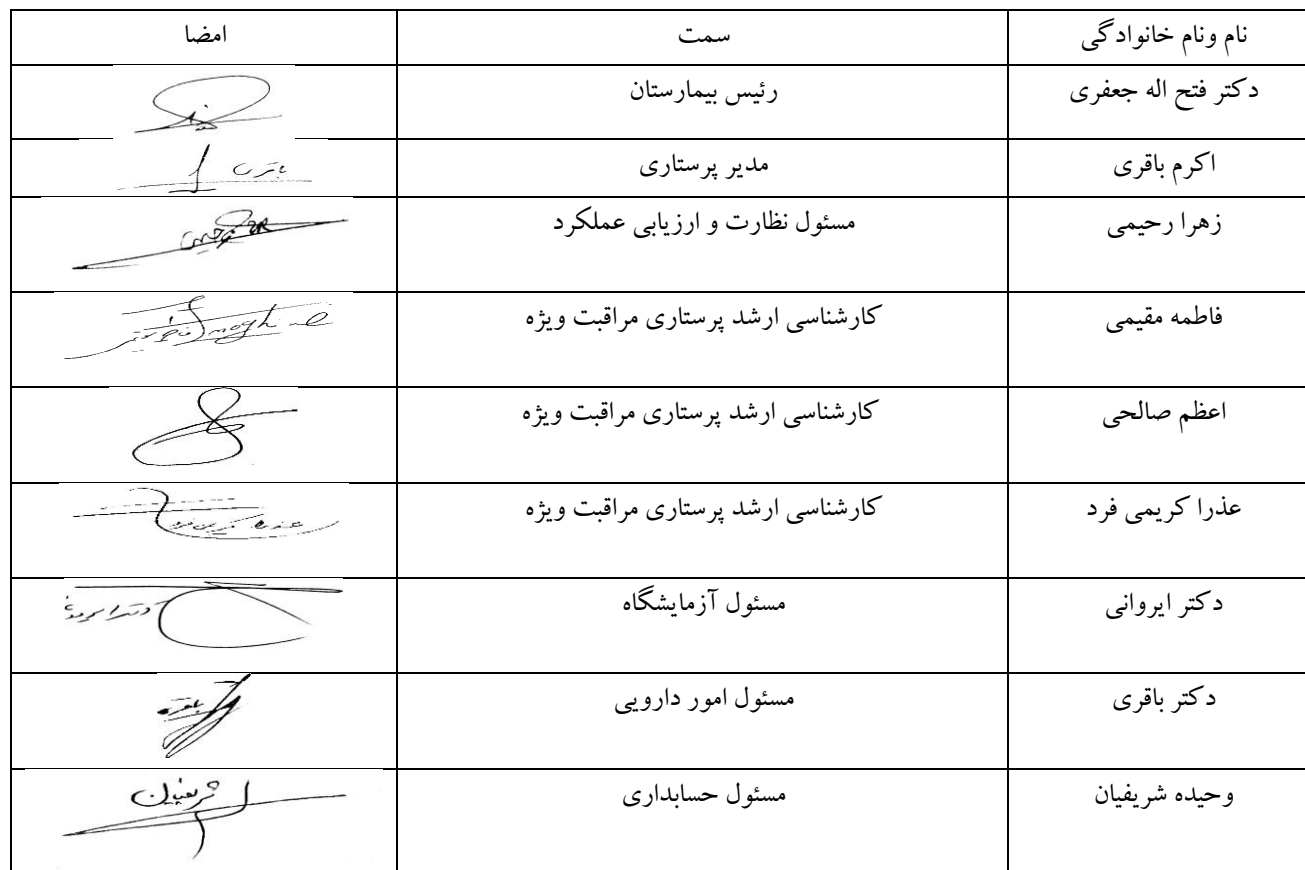 نام ونام خانوادگی سمت امضا
دکتر فتح اله جعفری رئیس بیمارستان
اکرم باقری مدیر پرستاری باقری
زهرا رحیمی مسئول نظارت و ارزیابی عملکرد
فاطمه مقیمی کارشناسی ارشد پرستاری مراقبت ویژه
اعظم صالحی کارشناسی ارشد پرستاری مراقبت ویژه
عذرا کریمی فرد کارشناسی ارشد پرستاری مراقبت ویژه عذرا کریمی فرد
دکتر ایروانی مسئول آزمایشگاه
دکتر باقری مسئول امور دارویی
وحیده شریفیان مسئول حسابداری شریفیان